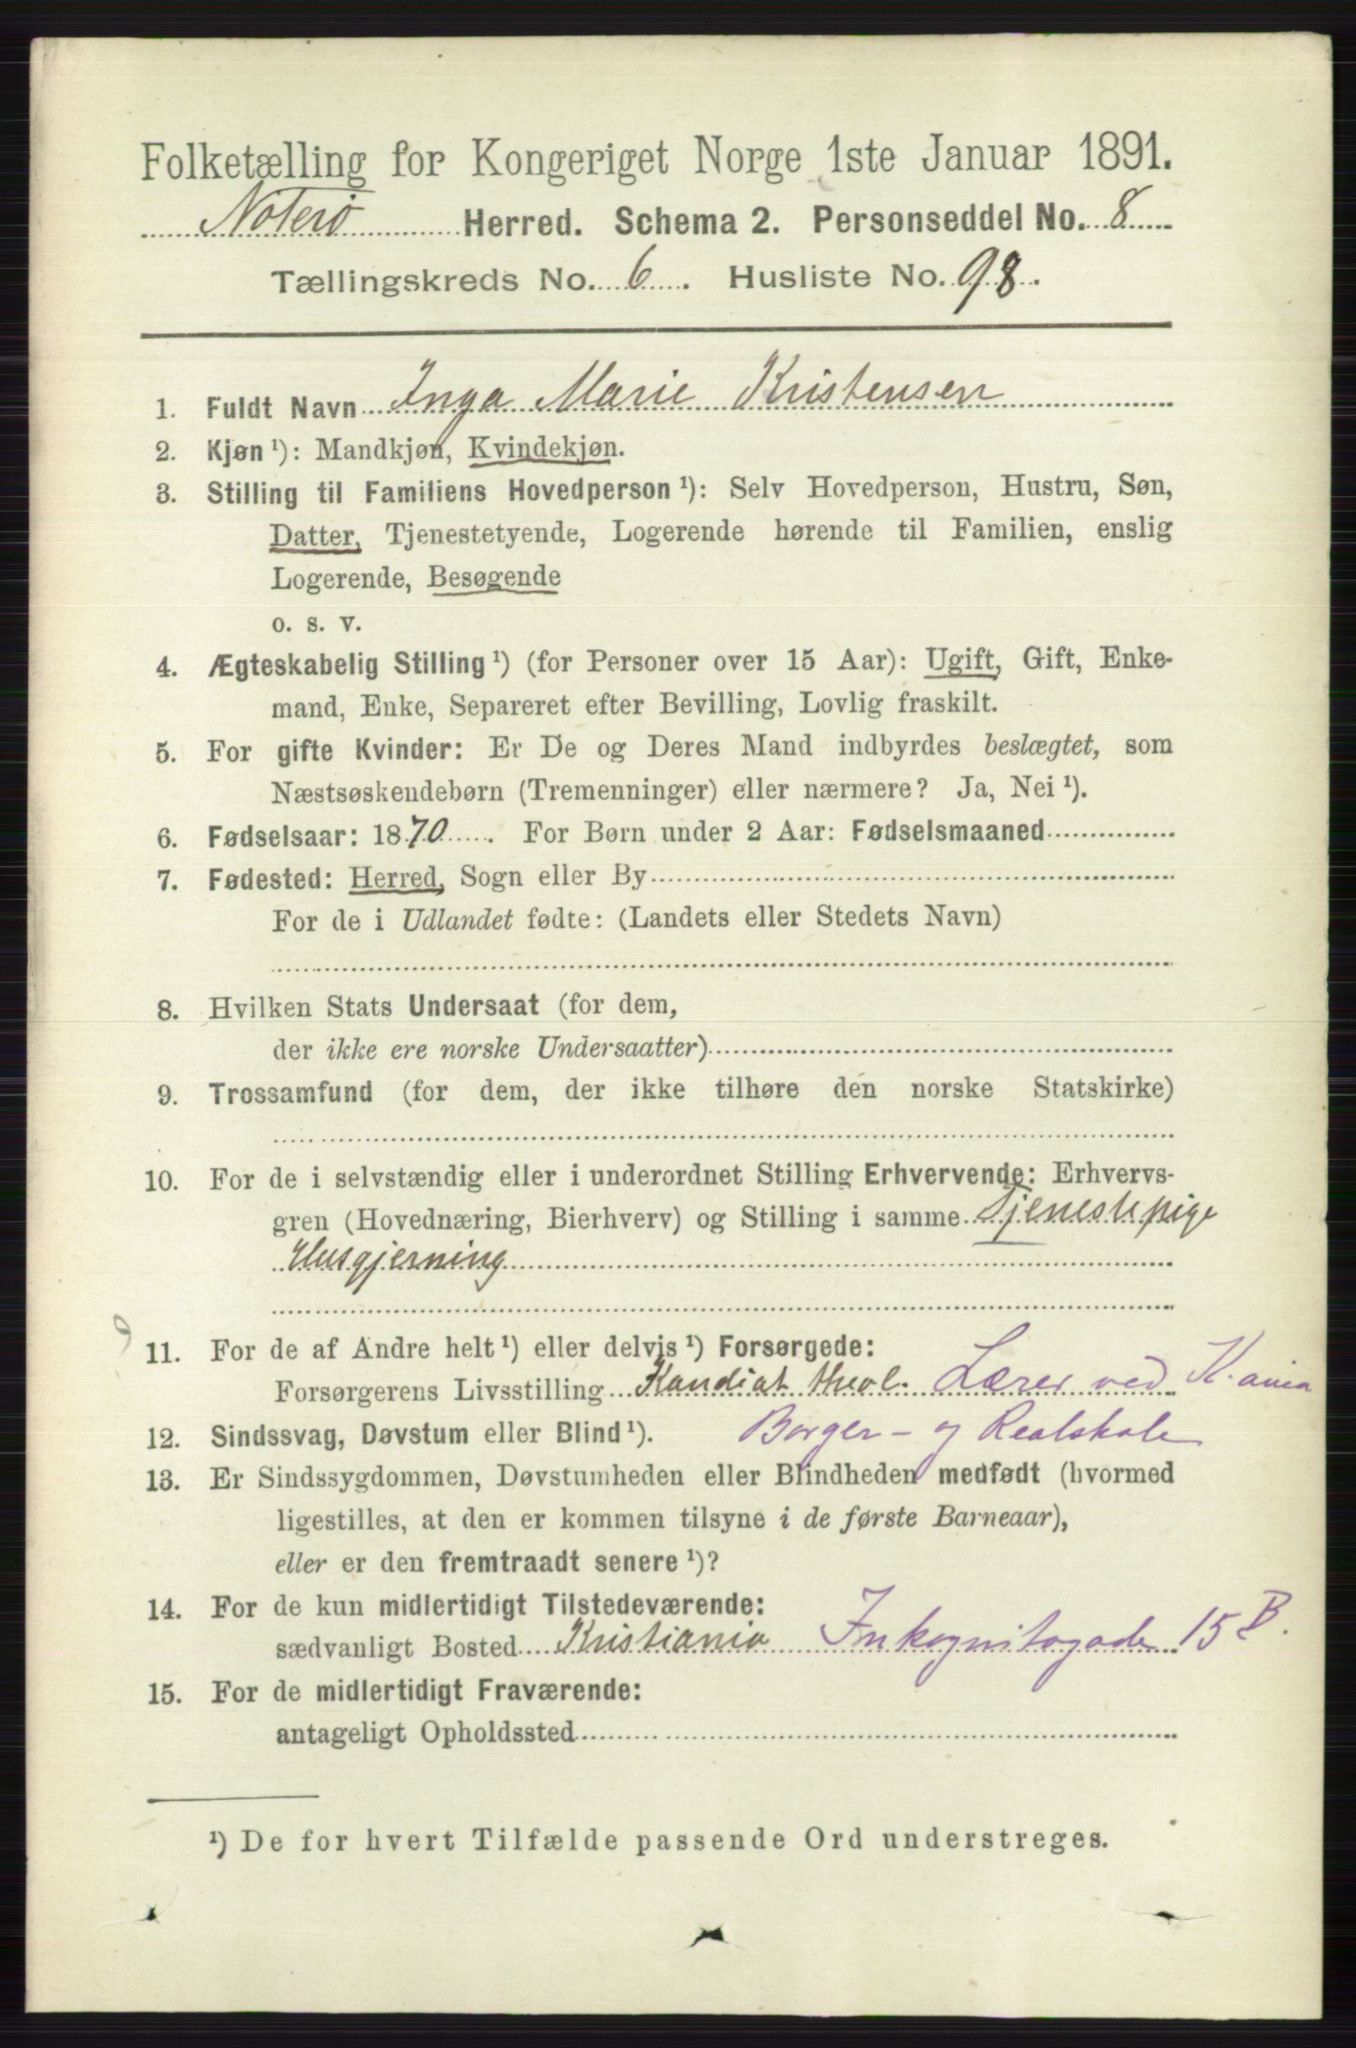 Folketælling for Kongeriget Norge 1ste Januar 1891.
Noterø Herred. Schema 2. Personseddel No. 8
Tællingskreds No. 6. Husliste No. 98.
1. Fuldt Navn Inga Marie Kristensen
2. Kjøn ¹): Mandkjøn, Kvindekjøn.
3. Stilling til Familiens Hovedperson ¹): Selv Hovedperson, Hustru, Søn,
Datter, Tjenestetyende, Logerende hørende til Familien, enslig
Logerende, Besøgende
o. s. v.
4. Ægteskabelig Stilling ¹) (for Personer over 15 Aar): Ugift, Gift, Enke-
mand, Enke, Separeret efter Bevilling, Lovlig fraskilt.
5. For gifte Kvinder: Er De og Deres Mand indbyrdes beslægtet, som
Næstsøskendebørn (Tremenninger) eller nærmere? Ja, Nei ¹).
6. Fødselsaar: 1870. For Børn under 2 Aar: Fødselsmaaned
7. Fødested: Herred, Sogn eller By
For de i Udlandet fødte: (Landets eller Stedets Navn)
8. Hvilken Stats Undersaat (for dem,
der ikke ere norske Undersaatter)
9. Trossamfund (for dem, der ikke tilhøre den norske Statskirke)
10. For de i selvstændig eller i underordnet Stilling Erhvervende: Erhvervs-
gren (Hovednæring, Bierhverv) og Stilling i samme Tjenestepige
Husgjerning
11. For de af Andre helt ¹) eller delvis ¹) Forsørgede:
Forsørgerens Livsstilling Kandiat theol. Lærer ved K.ania
12. Sindssvag, Døvstum eller Blind ¹). Borger- og Realskole
13. Er Sindssygdommen, Døvstumheden eller Blindheden medfødt (hvormed
ligestilles, at den er kommen tilsyne i de første Barneaar),
eller er den fremtraadt senere ¹)?
14. For de kun midlertidigt Tilstedeværende:
sædvanligt Bosted Kristiania Inkognitogade 15 B.
15. For de midlertidigt Fraværende:
antageligt Opholdssted
¹) De for hvert Tilfælde passende Ord understreges.